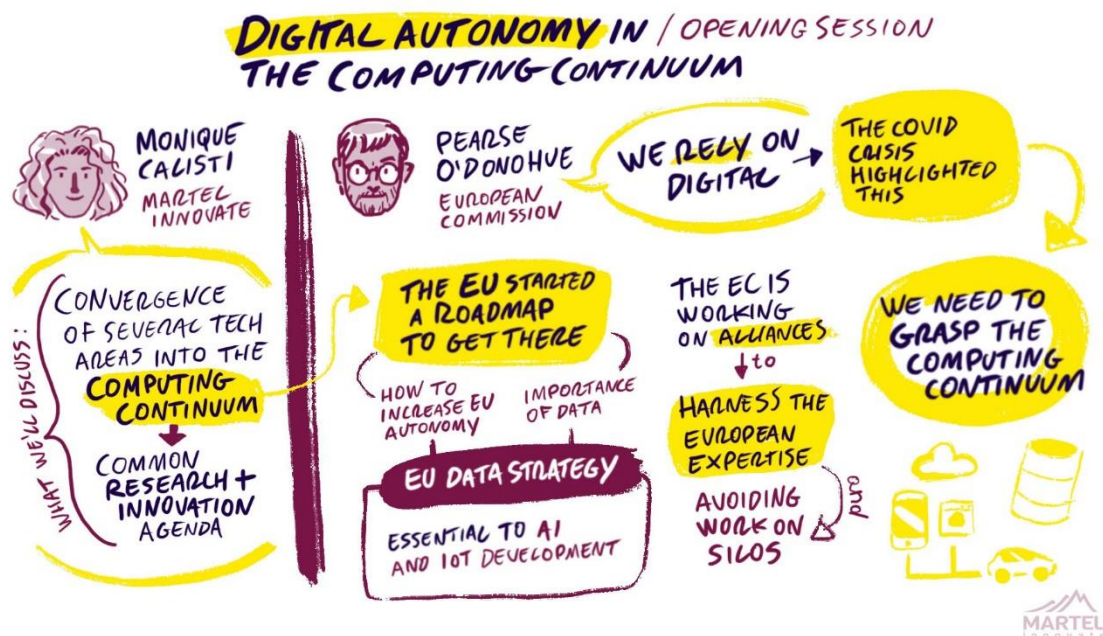 DIGITAL AUTONOMY IN / OPENING SESSION
THE COMPUTING CONTINUUM
MONIQUE
CALISTI
MARTEL
INNOVATE
WHAT WE'LL DISCUSS:
CONVERGENCE
OF SEVERAL TECH
AREAS INTO THE
COMPUTING
CONTINUUM
COMMON
RESEARCH +
INNOVATION
AGENDA
PEARSE
O'DONOHUE
EUROPEAN
COMMISSION
WE RELY ON
DIGITAL
THE COVID
CRISIS
HIGHLIGHTED
THIS
WE NEED TO
GRASP THE
COMPUTING
CONTINUUM
THE EU STARTED
A ROADMAP
TO GET THERE
HOW TO
INCREASE EU
AUTONOMY
IMPORTANCE
OF DATA
EU DATA STRATEGY
ESSENTIAL TO AI
AND IOT DEVELOPMENT
THE EC IS
WORKING
ON ALLIANCES
to
HARNESS THE
EUROPEAN
EXPERTISE
and
AVOIDING
WORK ON
SILOS
MARTEL